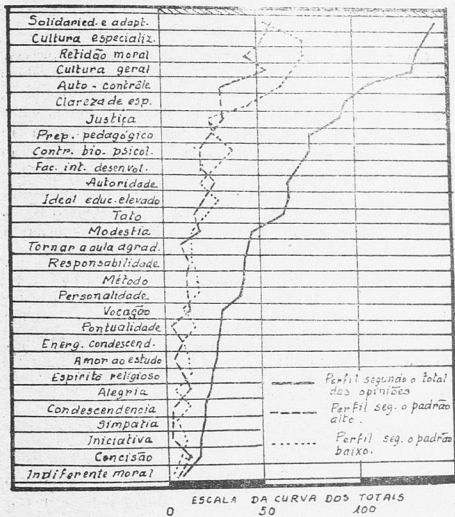 Solidaried. e adapt.
Cultura especializ.
Retidão moral
Cultura geral
Auto-contrôle
Clareza de esp.
Justiça
Prep. pedagógico
Contr. bio. psicol.
Fac. int. desenvol.
Autoridade
Ideal educ. elevado
Tato
Modestia
Tornar a aula agrad.
Responsabilidade
Método
Personalidade
Vocação
Pontualidade
Energ. condescend.
Amor ao estudo
Espirito religioso
Alegria
Condescendencia
Simpatia
Iniciativa
Concisão
Indiferente moral
Perfil segundo o total
das opiniões
Perfil seg. o padrão
alto.
Perfil seg. o padrão
baixo.
ESCALA DA CURVA DOS TOTAIS
0 50 100